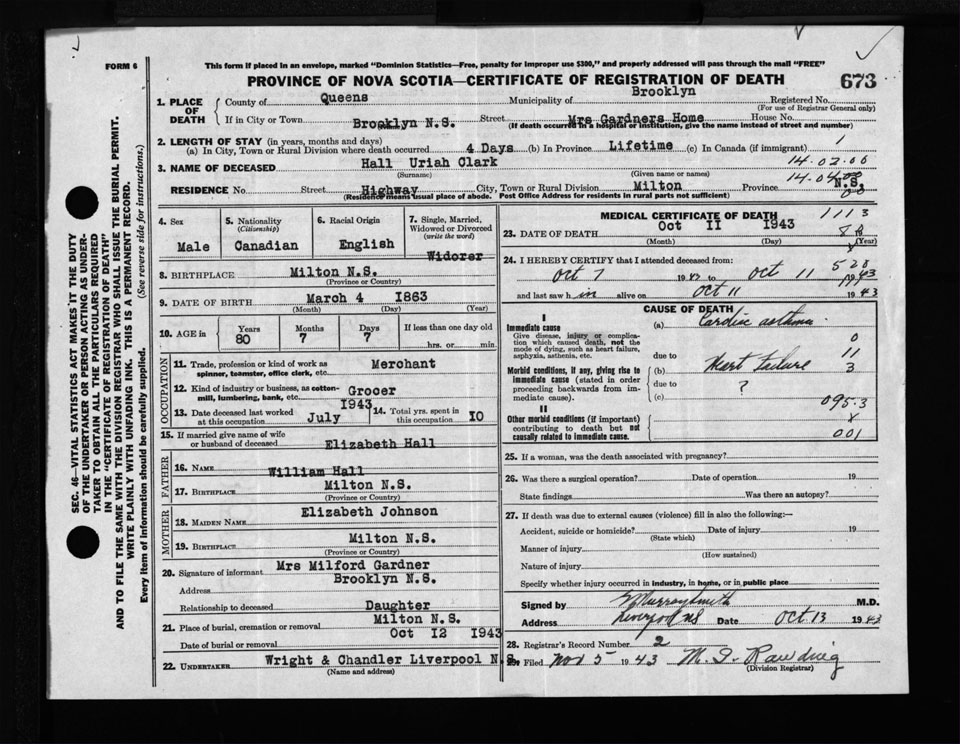 FORM 6
This form if placed in an envelope, marked "Dominion Statistics—Free, penalty for improper use $300," and properly addressed will pass through the mail "FREE"
PROVINCE OF NOVA SCOTIA—CERTIFICATE OF REGISTRATION OF DEATH
673
1. PLACE OF DEATH
County of Queens Municipality of Brooklyn Registered No.
(For use of Registrar General only)
If in City or Town Brooklyn N.S. Street Mrs Gardners Home House No.
(If death occurred in a hospital or institution, give the name instead of street and number)
2. LENGTH OF STAY (in years, months and days)
(a) In City, Town or Rural Division where death occurred 4 Days (b) In Province Lifetime (c) In Canada (if immigrant) 1
3. NAME OF DECEASED Hall Uriah Clark 14.02.06
(Surname) (Given name or names)
14.04.00
RESIDENCE No. Street Highway City, Town or Rural Division Milton Province N.S.
(Residence means usual place of abode. Post Office Address for residents in rural parts not sufficient)
4. Sex
Male
5. Nationality
(Citizenship)
Canadian
6. Racial Origin
English
7. Single, Married, Widowed or Divorced
(write the word)
Widorer
8. BIRTHPLACE Milton N.S.
(Province or Country)
9. DATE OF BIRTH March 4 1863
(Month) (Day) (Year)
10. AGE in
Years Months Days If less than one day old
80 7 7 hrs. or min.
OCCUPATION
11. Trade, profession or kind of work as spinner, teamster, office clerk, etc. Merchant
12. Kind of industry or business, as cotton-mill, lumbering, bank, etc. Grocer
13. Date deceased last worked at this occupation July 1943
14. Total yrs. spent in this occupation 10
15. If married give name of wife or husband of deceased Elizabeth Hall
FATHER
16. NAME William Hall
17. BIRTHPLACE Milton N.S.
(Province or Country)
MOTHER
18. MAIDEN NAME Elizabeth Johnson
19. BIRTHPLACE Milton N.S.
(Province or Country)
20. Signature of informant Mrs Milford Gardner
Address Brooklyn N.S.
Relationship to deceased Daughter
21. Place of burial, cremation or removal Milton N.S.
Date of burial or removal Oct 12 1943
22. UNDERTAKER Wright & Chandler Liverpool N.S.
(Name and address)
MEDICAL CERTIFICATE OF DEATH
1113
23. DATE OF DEATH Oct 11 1943
(Month) (Day) (Year)
24. I HEREBY CERTIFY that I attended deceased from: 528
Oct 7 1943 to Oct 11 1943
and last saw him alive on Oct 11 1943
CAUSE OF DEATH
I
Immediate cause (a) Cardiac asthma
Give disease, injury or complication which caused death, not the mode of dying, such as heart failure, asphyxia, asthenia, etc.
0
due to 11
Morbid conditions, if any, giving rise to immediate cause (stated in order proceeding backwards from immediate cause).
(b) Heart Failure 3
due to ?
(c) 095.3
II
Other morbid conditions (if important) contributing to death but not causally related to immediate cause.
x
001
25. If a woman, was the death associated with pregnancy?
26. Was there a surgical operation? Date of operation 19
State findings Was there an autopsy?
27. If death was due to external causes (violence) fill in also the following:—
Accident, suicide or homicide? Date of injury 19
(State which)
Manner of injury
(How sustained)
Nature of injury
Specify whether injury occurred in industry, in home, or in public place
Signed by Murray Smith M.D.
Address Liverpool NS Date Oct 13 1943
28. Registrar's Record Number 2
29. Filed Nov 5 1943
(Division Registrar)
SEC. 46—VITAL STATISTICS ACT MAKES IT THE DUTY
OF THE UNDERTAKER OR PERSON ACTING AS UNDER-
TAKER TO OBTAIN ALL THE PARTICULARS REQUIRED
IN THE "CERTIFICATE OF REGISTRATION OF DEATH"
AND TO FILE THE SAME WITH THE DIVISION REGISTRAR WHO SHALL ISSUE THE BURIAL PERMIT.
WRITE PLAINLY WITH UNFADING INK. THIS IS A PERMANENT RECORD.
Every item of information should be carefully supplied. (See reverse side for instructions.)